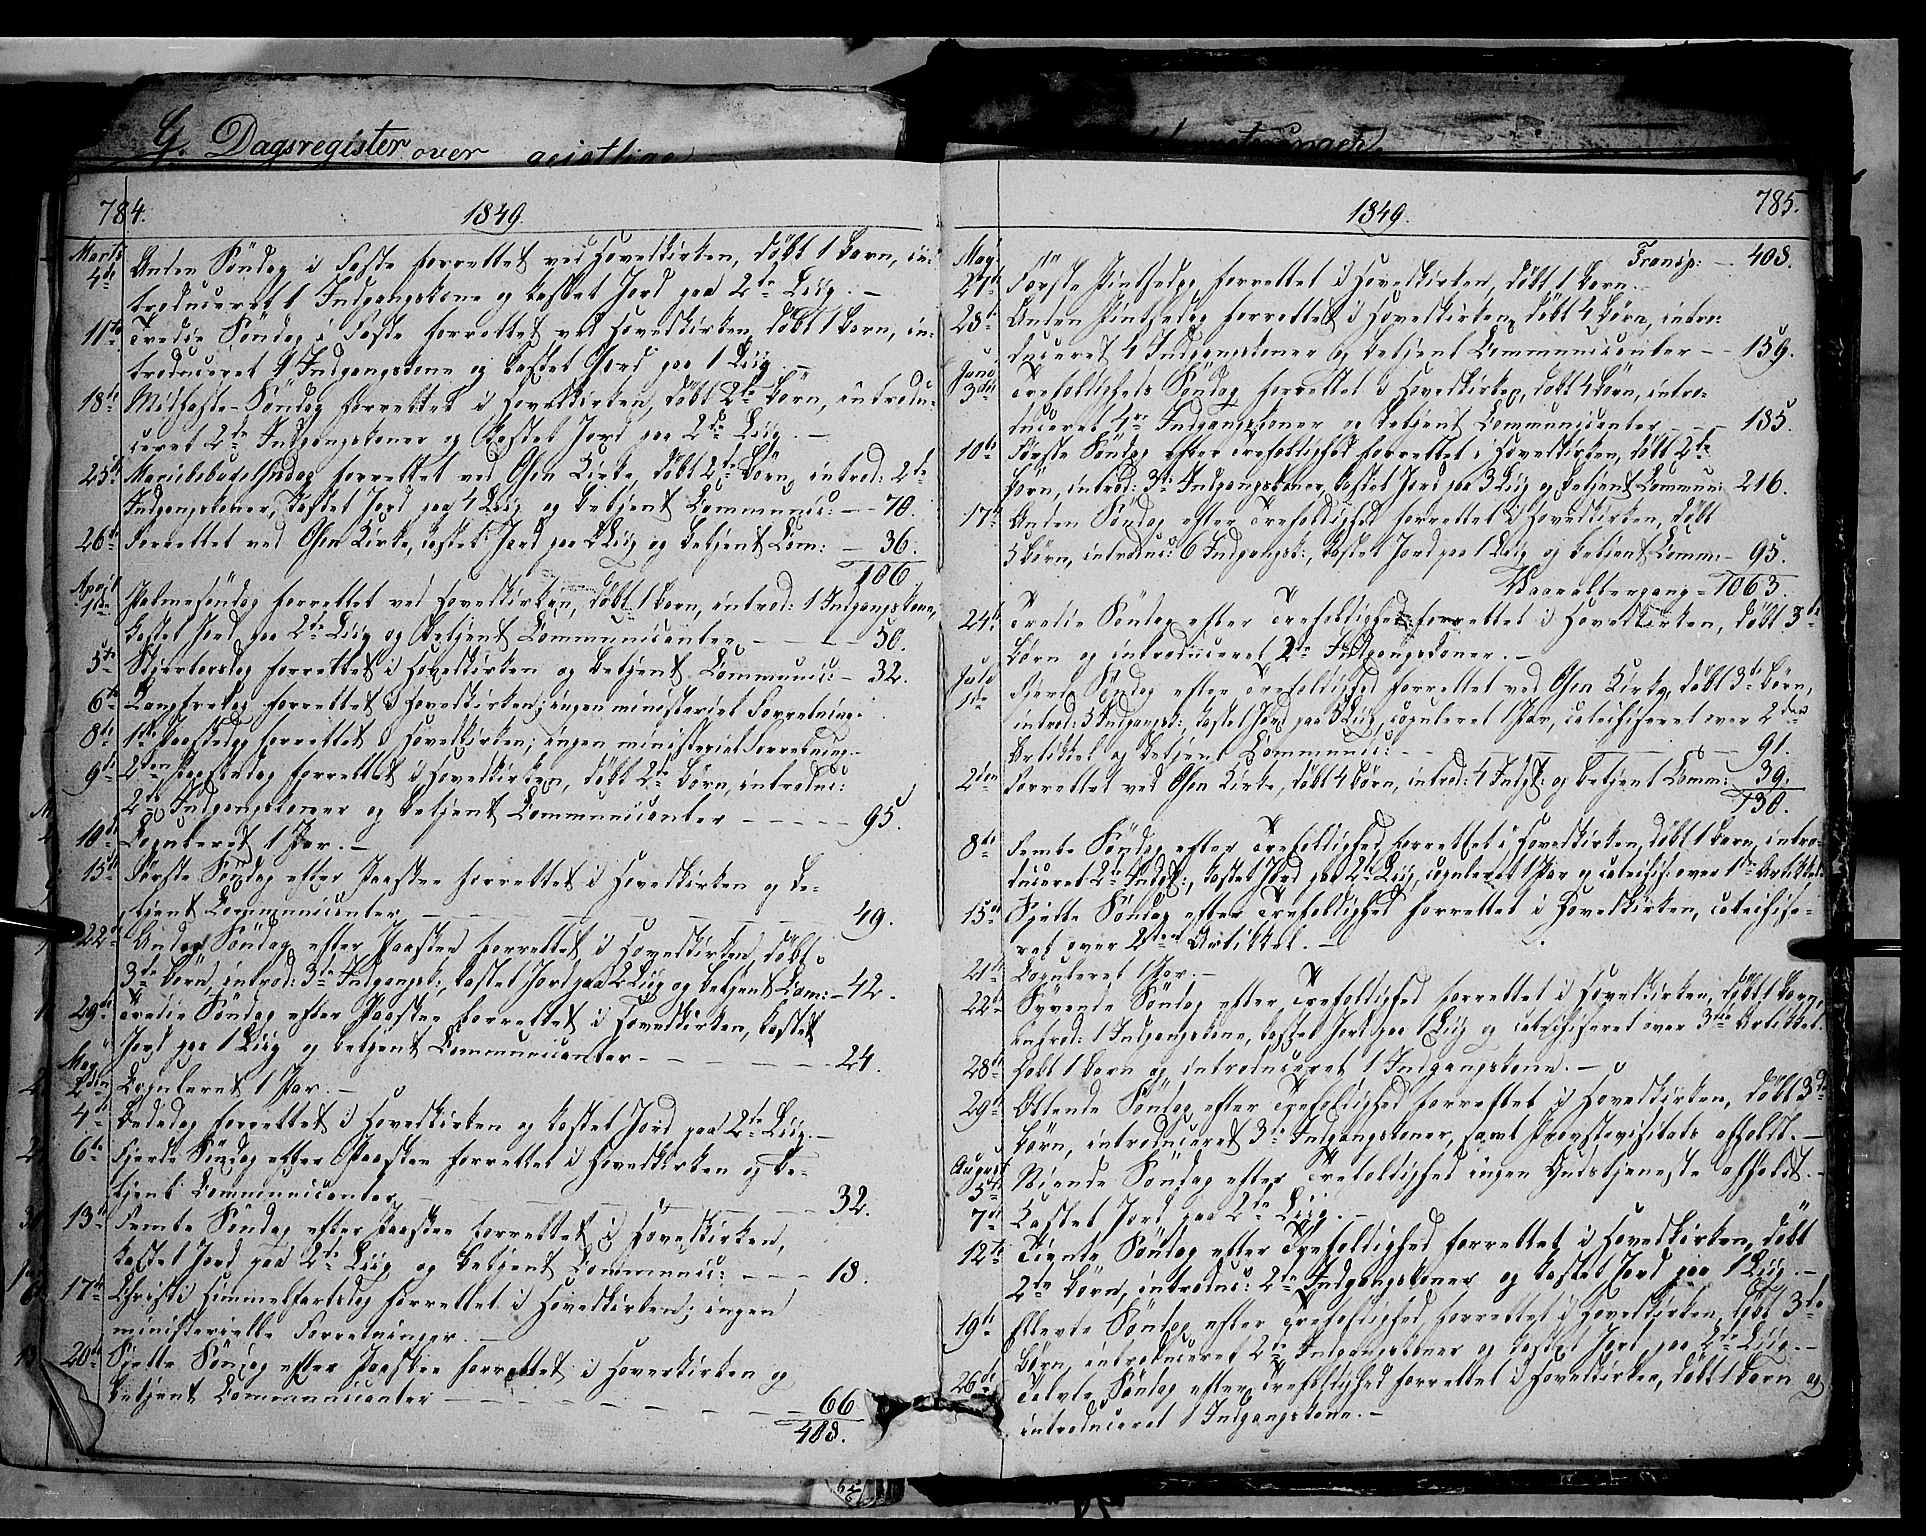 G. Dagsregister over geistlige
784.
1849.
Marts
4de Anden Söndag i Faste forrettet ved Hovedkirken, döbt 1 Barn, in-
troduceret 1 Indgangskone og kastet Jord paa 2de Liig. –
11te Tredie Söndag i Faste forrettet ved Hovedkirken, döbt 1 Barn, in-
troduceret 1 Indgangskone og kastet Jord paa 1 Liig. –
18de Midfaste-Söndag forrettet i Hovedkirken, döbt 2de Börn, introdu-
ceret 2de Indgangskoner og kastet Jord paa 2de Liig. –
25de Mariæbebudelsesdag forrettet ved Osen Kirke, döbt 2de Börn, introd: 2de
Indgangskoner, kastet Jord paa 4 Liig og betjent Communic: – 70.
26de Forrettet ved Osen Kirke, kastet Jord paa Liig og betjent Com: – 36.
106.
April
1ste Palmesöndag forrettet ved Hovedkirken, döbt 1 Barn, introd: 1 Indgangskone,
kastet Jord paa 2de Liig og betjent Communicanter – – – 50.
5te Skjertorsdag forrettet i Hovedkirken og betjent Communic: – 32.
6te Langfredag forrettet i Hovedkirken; ingen ministeriel Forretning.
8de 1ste Paaskedag forrettet i Hovedkirken; ingen ministeriel Forretning. –
9de 2den Paaskedag forrettet i Hovedkirken, döbt 2de Börn, introduc:
2de Indgangskoner og betjent Communicanter – – – – – 95.
10de Copuleret 1 Par. –
15de Förste Söndag efter Paaske forrettet i Hovedkirken og be-
tjent Communicanter – – – – – – 49.
22de Anden Söndag efter Paaske forrettet i Hovedkirken, döbt
3de Börn, introd: 3de Indgangsk:, kastet Jord paa 2 Liig og betjent Com: – 42.
29de Tredie Söndag efter Paaske forrettet i Hovedkirken, kastet
Jord paa 1 Liig og betjent Communicanter – – – – – 24.
May
2den Copuleret 1 Par. –
4de Bededag forrettet i Hovedkirken og kastet Jord paa 2de Liig. –
6te Fjerde Söndag efter Paaske forrettet i Hovedkirken og be-
tjent Communicanter – – – – – 32.
13de Femte Söndag efter Paaske forrettet i Hovedkirken,
kastet Jord paa 2de Liig og betjent Communic: – – – 18.
17de Christi Himmelfartsdag forrettet i Hovedkirken; ingen
ministerielle Forretninger. –
20de Sjette Söndag efter Paaske forrettet i Hovedkirken og
betjent Communicanter – – – – – – – – 66
408.
785.
1849.
Transp: – 408.
May
27de Förste Pintsedag forrettet i Hovedkirken, döbt 1 Barn.
28de Anden Pintsedag forrettet i Hovedkirken, döbt 4 Börn, intro-
duceret 4 Indgangskoner og betjent Communicanter – – 159.
Juni
3die Trefoldigheds Söndag forrettet i Hovedkirken, döbt 4 Börn, intro-
duceret Indgangskoner og betjent Communicanter – – – 185.
10de Förste Söndag efter Trefoldighed forrettet i Hovedkirken, döbt 2de
Börn, introd: 3de Indgangskoner, kastet Jord paa 3 Liig og betjent Commun: 216.
17de Anden Söndag efter Trefoldighed forrettet i Hovedkirken, döbt
5 Börn, introduc: 6 Indgangsk:, kastet Jord paa 1 Liig og betjent Comm: – 95.
Vaaraltergang = 1063.
24de Tredie Söndag efter Trefoldighed forrettet i Hovedkirken, döbt 3de
Börn og introduceret 2de Indgangskoner. –
Juli
1ste Fjerde Söndag efter Trefoldighed forrettet ved Osen Kirke, döbt 3de Börn,
introd: 3 Indgangsk:, kastet Jord paa 5 Liig, copuleret 1 Par, catechiseret over 2den
Artikkel og betjent Communic: – – – – 91.
2den Forrettet ved Osen Kirke, döbt 4 Börn, introd: 4 Indgsk: og betjent Comm: 39.
130.
8de Femte Söndag efter Trefoldighed forrettet i Hovedkirken, döbt 1 Barn, intro-
duceret 2de Indgsk:, kastet Jord paa 2de Liig, copuleret 1 Par og catechis: over 1ste Artikkel.
15de Sjette Söndag efter Trefoldighed forrettet i Hovedkirken, catechise-
ret over 2den Artikkel. –
21de Copuleret 1 Par. –
22de Syvende Söndag efter Trefoldighed forrettet i Hovedkirken, döbt 1 Barn,
introd: 1 Indgangskone, kastet Jord paa 1 Liig og catechiseret over 3die Artikkel.
28de Döbt 1 Barn og introduceret 1 Indgangskone. –
29de Ottende Söndag efter Trefoldighed forrettet i Hovedkirken, döbt 3de
Börn, introduceret 3de Indgangskoner, samt Provstevisitats afholdt. –
August
5te Niende Söndag efter Trefoldighed ingen Gudstjeneste afholdt. –
7de Kastet Jord paa 2de Liig. –
12te Tiende Söndag efter Trefoldighed forrettet i Hovedkirken, döbt
2de Börn, introduc: 2de Indgangskoner og kastet Jord paa 1 Liig. –
19de Ellevte Söndag efter Trefoldighed forrettet i Hovedkirken, döbt 3de
Börn, introduceret 2de Indgangskoner og kastet Jord paa 2de Liig. –
26de Tolvte Söndag efter Trefoldighed forrettet i Hovedkirken, döbt 1 Barn og
introduceret 1 Indgangskone. –